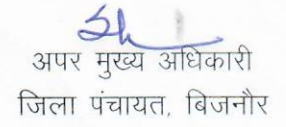 अपर मुख्य अधिकारी
जिला पंचायत, बिजनौर